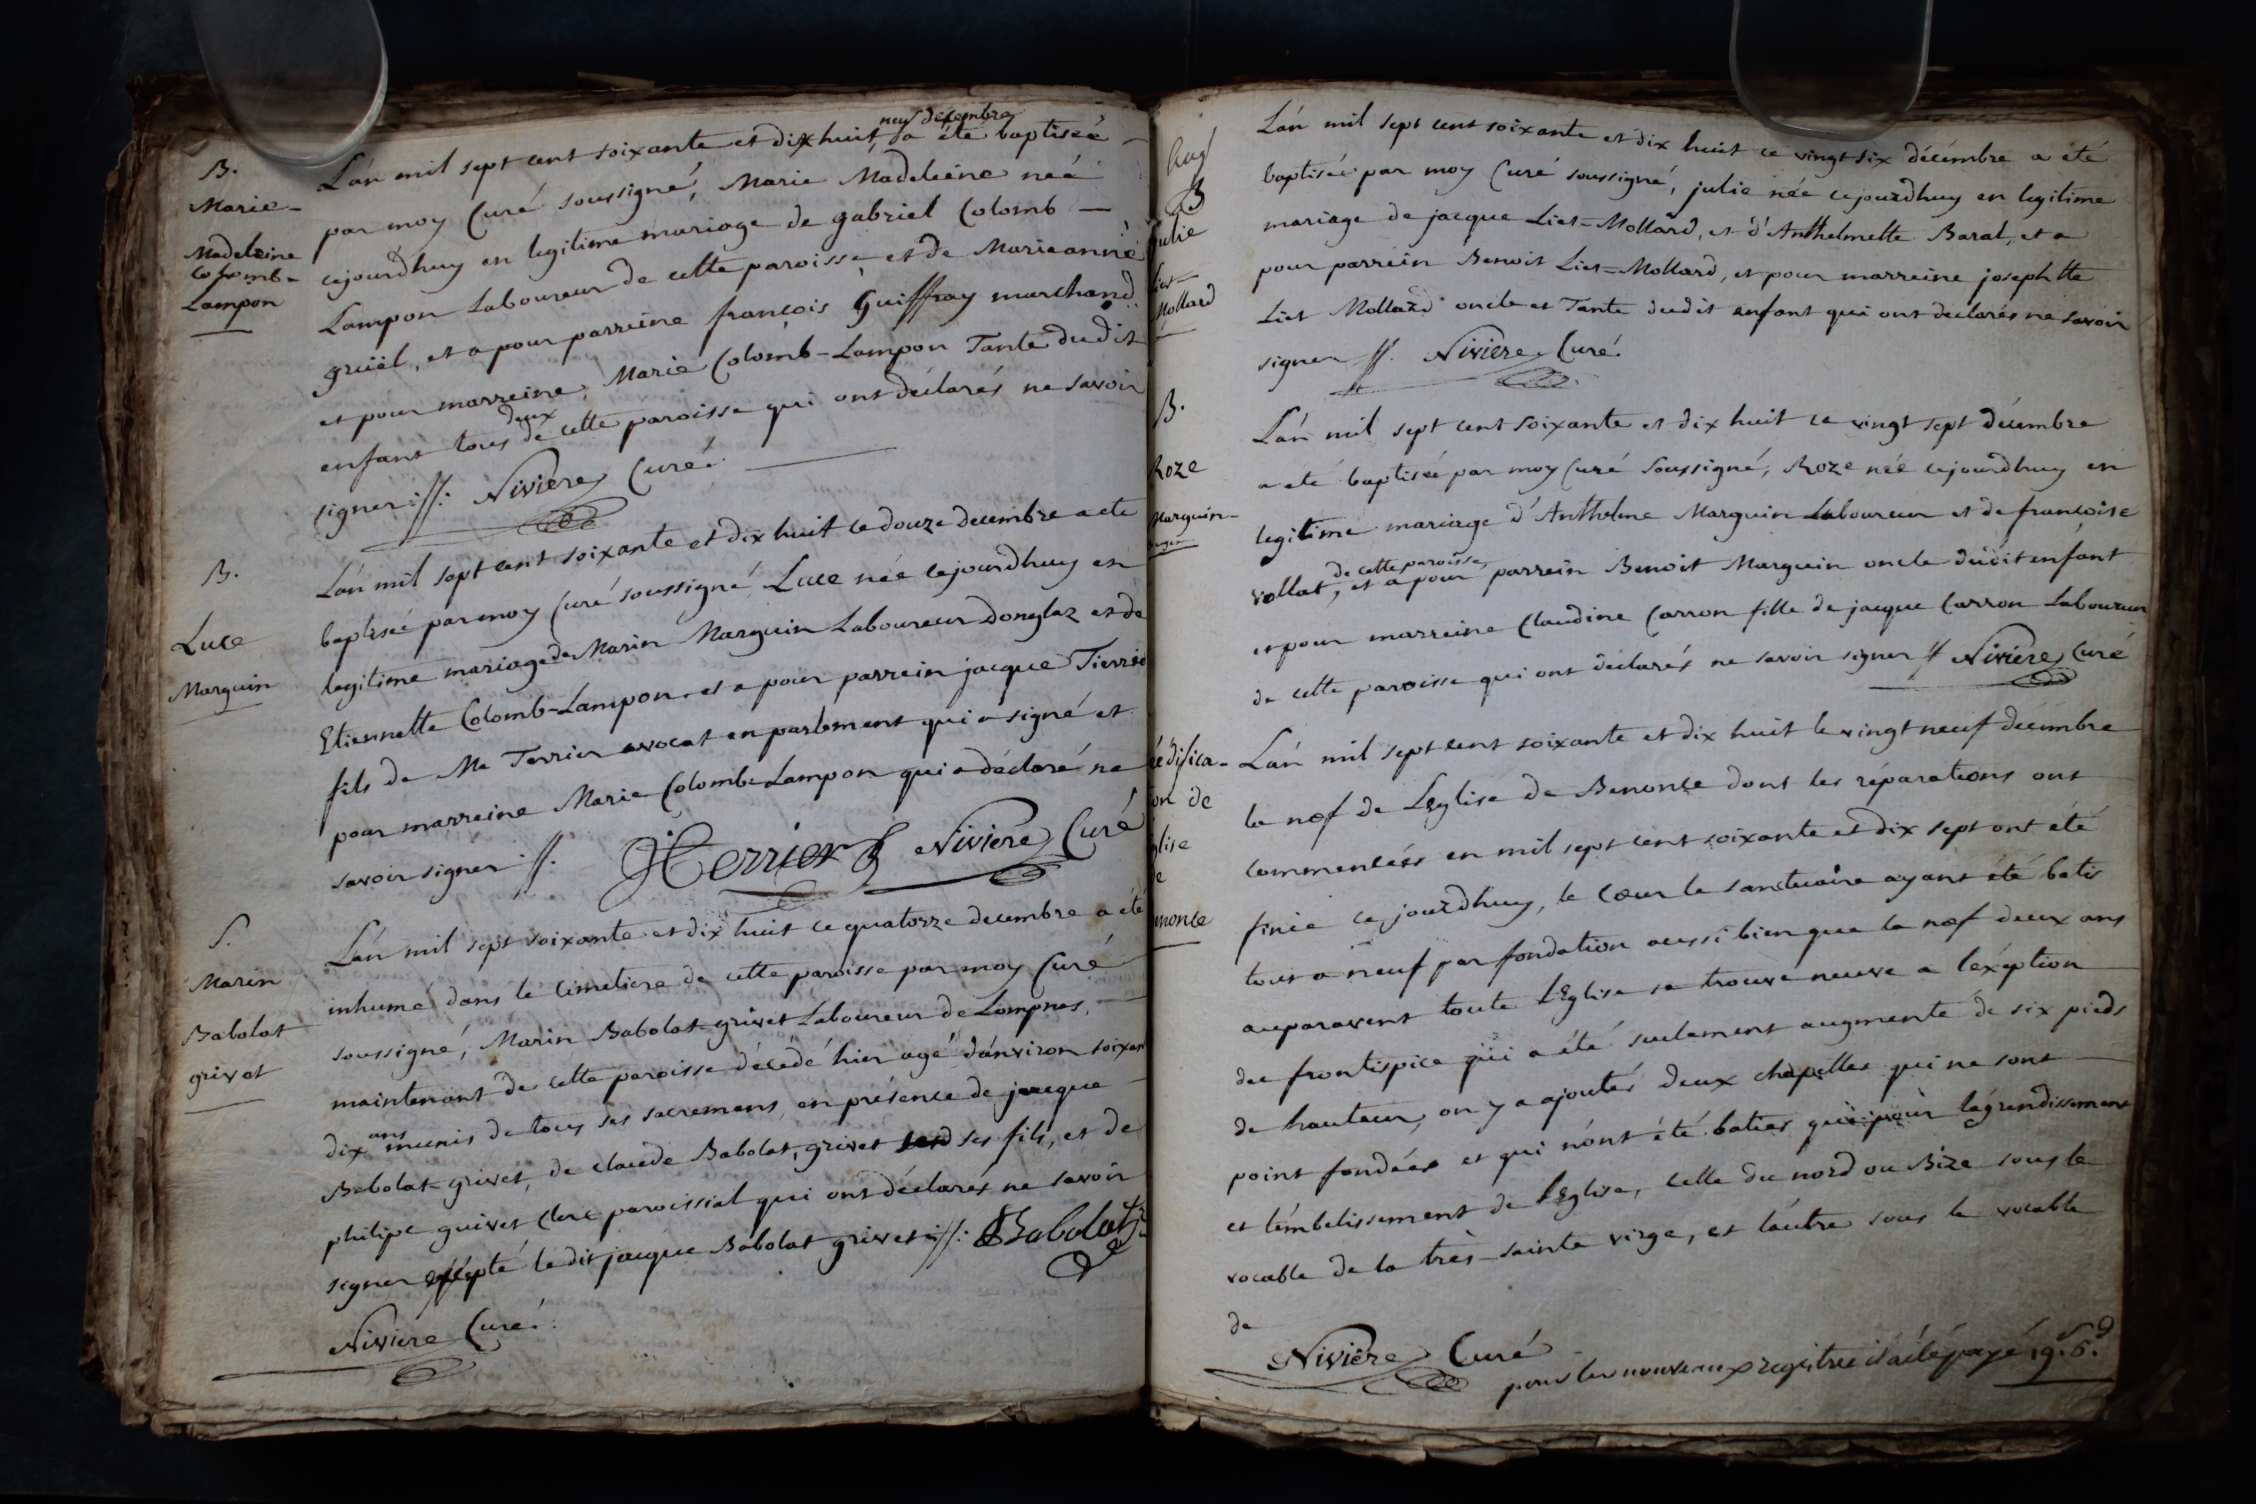 B.
Marie-
Madeleine
Colomb-
Lampon
neuf décembre
L'an mil sept cent soixante et dix huit, a été baptiseé
par moy Curé soussigné, Marie Madeleine neé
cejourdhuy en legitime mariage de gabriel Colomb —
Lampon Laboureur de cette paroisse, et de Marieanne
gruël, et a pour parreine françois Guiffray marchand
et pour marreine, Marie Colomb-Lampon Tante dudit
deux
enfant tous de cette paroisse qui ont déclarés ne savoir
signer ://: Nivière Curé.
B.
Luce
Marguin
L'an mil sept cent soixante et dix huit ce douze decembre a ete
baptisée par moy Curé soussigné, Luce née cejourdhuy en
legitime mariage de Marin Marguin Laboureur donglaz et de
Etiennette Colomb-Lampon, et a pour parrein jacque Tierrier
fils de Me Terrier avocat en parlement qui a signé et
pour marreine Marie Colomb Lampon qui a déclaré ne
savoir signer ://: Terrier Nivière Curé
S.
Marin
Babolat
grivet
L'an mil sept soixante et dix huit ce quatorze decembre a été
inhumé dans le cimetiere de cette paroisse par moy Curé
soussigné, Marin Babolat grivet Laboureur de Lompnas,
maintenant de cette paroisse décédé hier agé d'anviron soixan
ans
dix munis de tous ses sacremens, en présence de jacque
Babolat grivet, de claude Babolat, grivet ses fils, et de
philipe guivet Clerc paroissial qui ont déclarés ne savoir
signer excépté le dit jacque Babolat grivet ://: Babolat
Nivière Curé.
B
julie
Liet-
Mollard
L'an mil sept cent soixante et dix huit ce vingt six décembre a été
baptisée par moy Curé soussigné, julie née cejourdhuy en legitime
mariage de jacque Liet-Mollard, et d'Anthelmette Baral, et a
pour parrein Benoit Liet-Mollard, et pour marreine josephtte
Liet Mollard oncle et Tante dudit enfant qui ont declarés ne savoir
signer //. Nivière Curé.
B.
Roze
Marguin-
L'an mil sept cent soixante et dix huit ce vingt sept décembre
a été baptisée par moy Curé Soussigné, Roze née cejourdhuy en
legitime mariage d'Anthelme Marguin Laboureur et de françoise
de cette paroisse
vollat, et a pour parrein Benoit Marguin oncle dudit enfant
et pour marreine Claudine Carron fille de jacque Carron Laboureur
de cette paroisse qui ont déclarés ne savoir signer // Nivière Curé
édifica-
on de
glise
de
nonce
L'an mil sept cent soixante et dix huit le vingt neuf décembre
la nef de L'eglise de Benonce dont les réparations ont
commencées en mil sept cent soixante et dix sept ont été
finie ce jourdhuy, le cœur le sanctuaire ayant été batis
tout a neuf par fondation aussi bien que la nef deux ans
auparavent toute l'Eglise se trouve neuve a l'éxéption
du frontispice qui a été seulement augmenté de six pieds
de hauteur, on y a ajoutés deux chapelles qui ne sont
point fondées et qui n'ont été baties que pour l'agrendissement
et l'émbelissement de l'Eglise, celle du nord ou Bize sous le
vocable de la très-sainte virge, et l'autre sous le vocable
de
Nivière Curé
pour les nouveaux regitres il a été payé 19.s 6.d